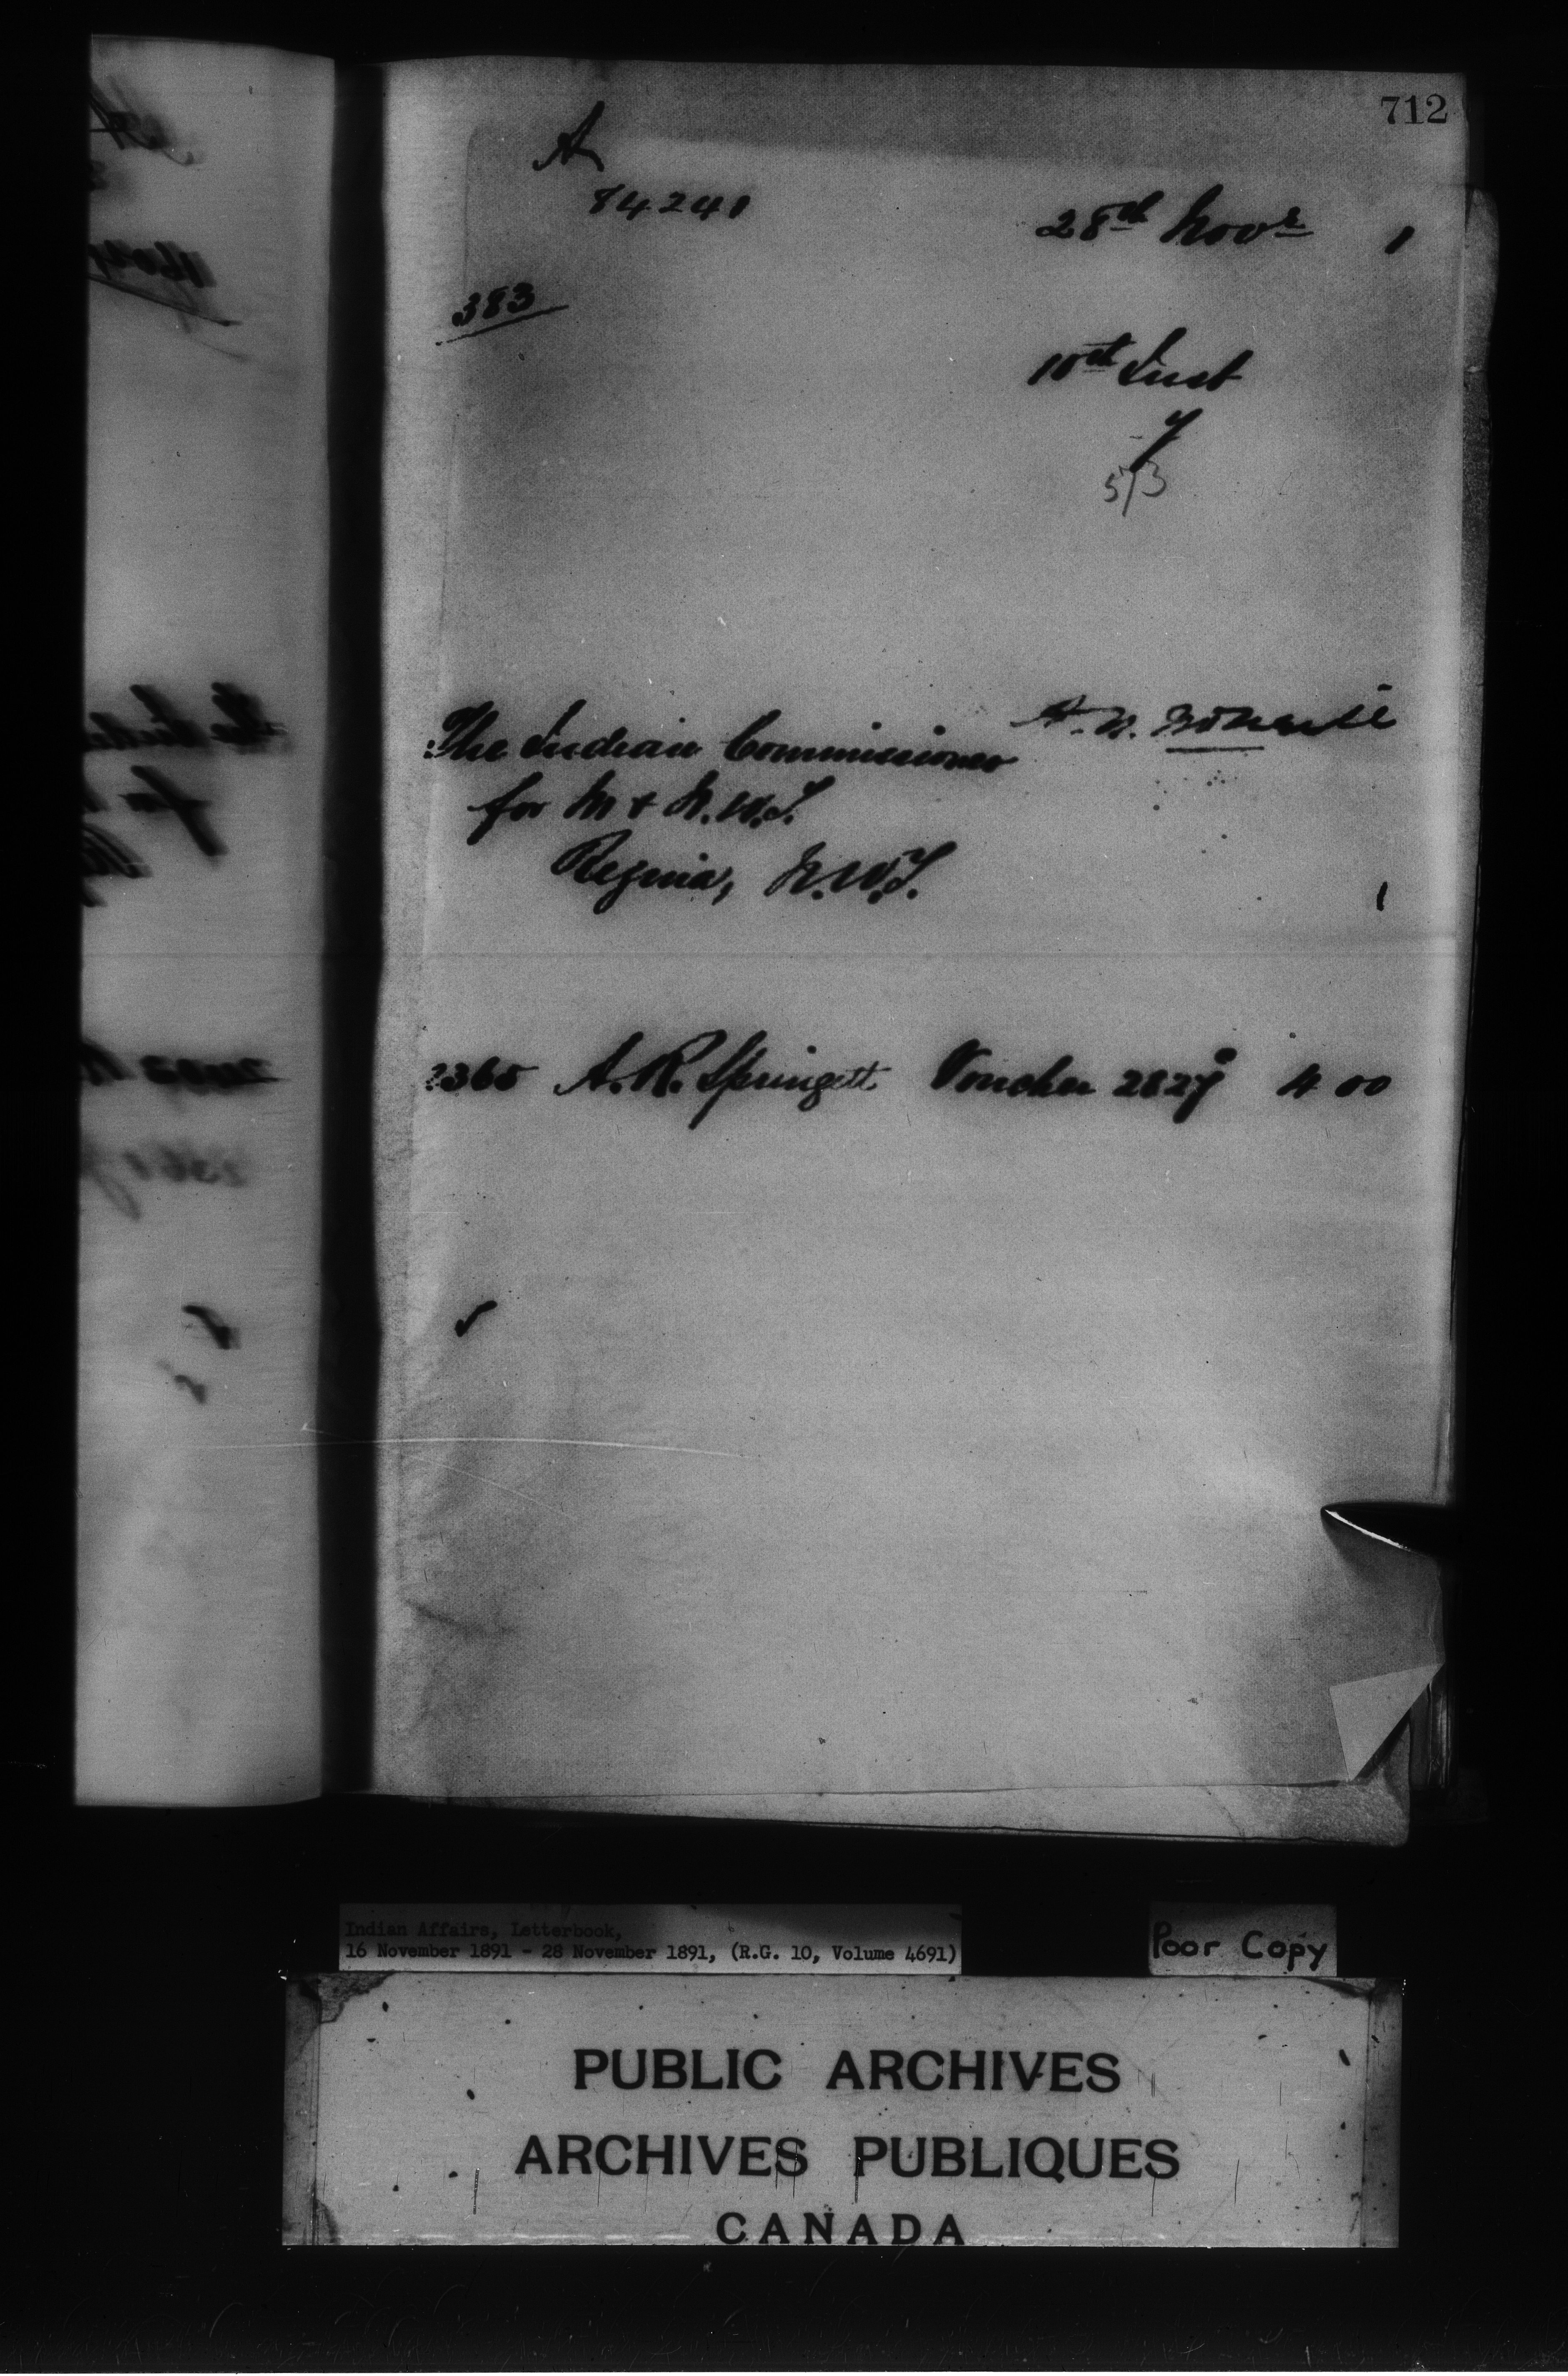 712
A
84241
28th Novr 1
383
10th Inst
7
573
The Indian Commissioner
for M & N.W.T.
Regina, N.W.T.
A. N.
1
2365 A.R. Springett Voucher 2827 4 00
Indian Affairs, Letterbook,
16 November 1891 - 28 November 1891, (R.G. 10, Volume 4691)
Poor Copy
PUBLIC ARCHIVES
ARCHIVES PUBLIQUES
CANADA